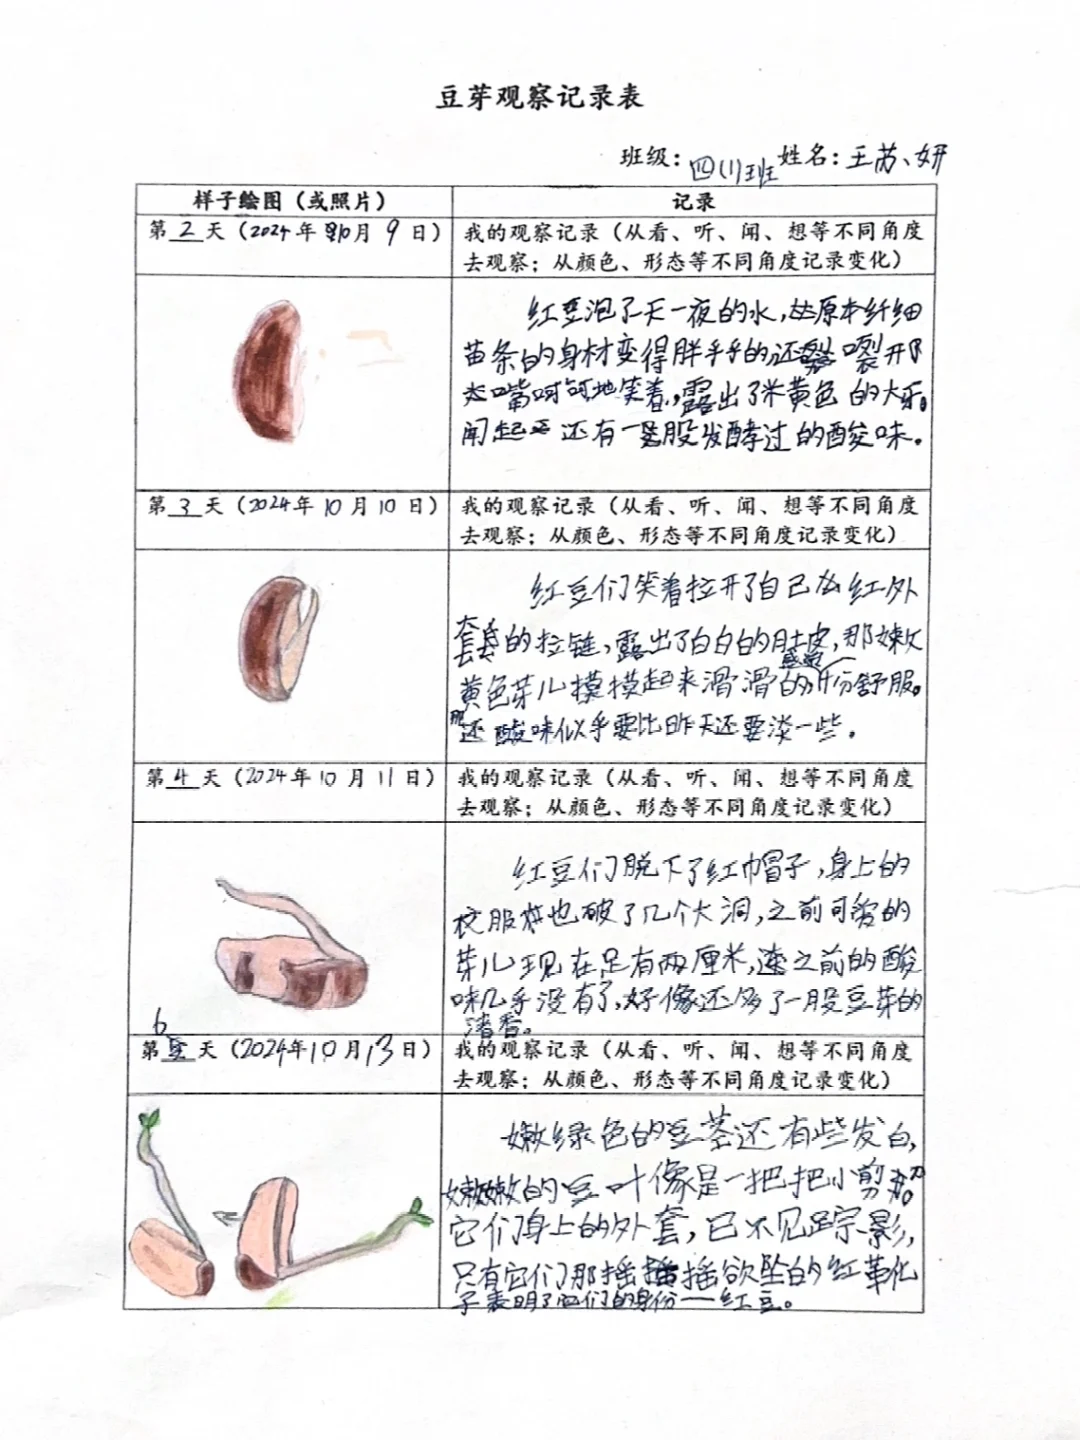 豆芽观察记录表
班级：四(1)班 姓名：王苏、妍
样子绘图（或照片） 记录
第2天（2024年10月9日） 我的观察记录（从看、听、闻、想等不同角度
去观察；从颜色、形态等不同角度记录变化）
红豆泡了天一夜的水，原本纤细
苗条的身材变得胖乎乎的还裂开
大嘴呵呵地笑着，露出了米黄色的大牙。
闻起 还有一股发酵过的酸味。
第3天（2024年10月10日） 我的观察记录（从看、听、闻、想等不同角度
去观察；从颜色、形态等不同角度记录变化）
红豆们笑着拉开了自己 红外
套的拉链，露出了白白的肚皮，那嫩
黄色芽儿摸摸起来滑滑的感觉十分舒服。
那 酸味似乎要比昨天还要淡一些。
第4天（2024年10月11日） 我的观察记录（从看、听、闻、想等不同角度
去观察；从颜色、形态等不同角度记录变化）
红豆们脱下了红巾帽子，身上的
校服 也破了几个大洞，之前可爱的
芽儿现在足有两厘米，连之前的酸
味几乎没有了，好像还多了一股豆芽的
清香。
第6天（2024年10月13日） 我的观察记录（从看、听、闻、想等不同角度
去观察；从颜色、形态等不同角度记录变化）
嫩绿色的豆茎还有些发白，
嫩嫩的豆叶像是一把把小剪刀。
它们身上的外套，已不见踪影，
只有它们那摇摇欲坠的红革化
子表明了它们的身份——红豆。